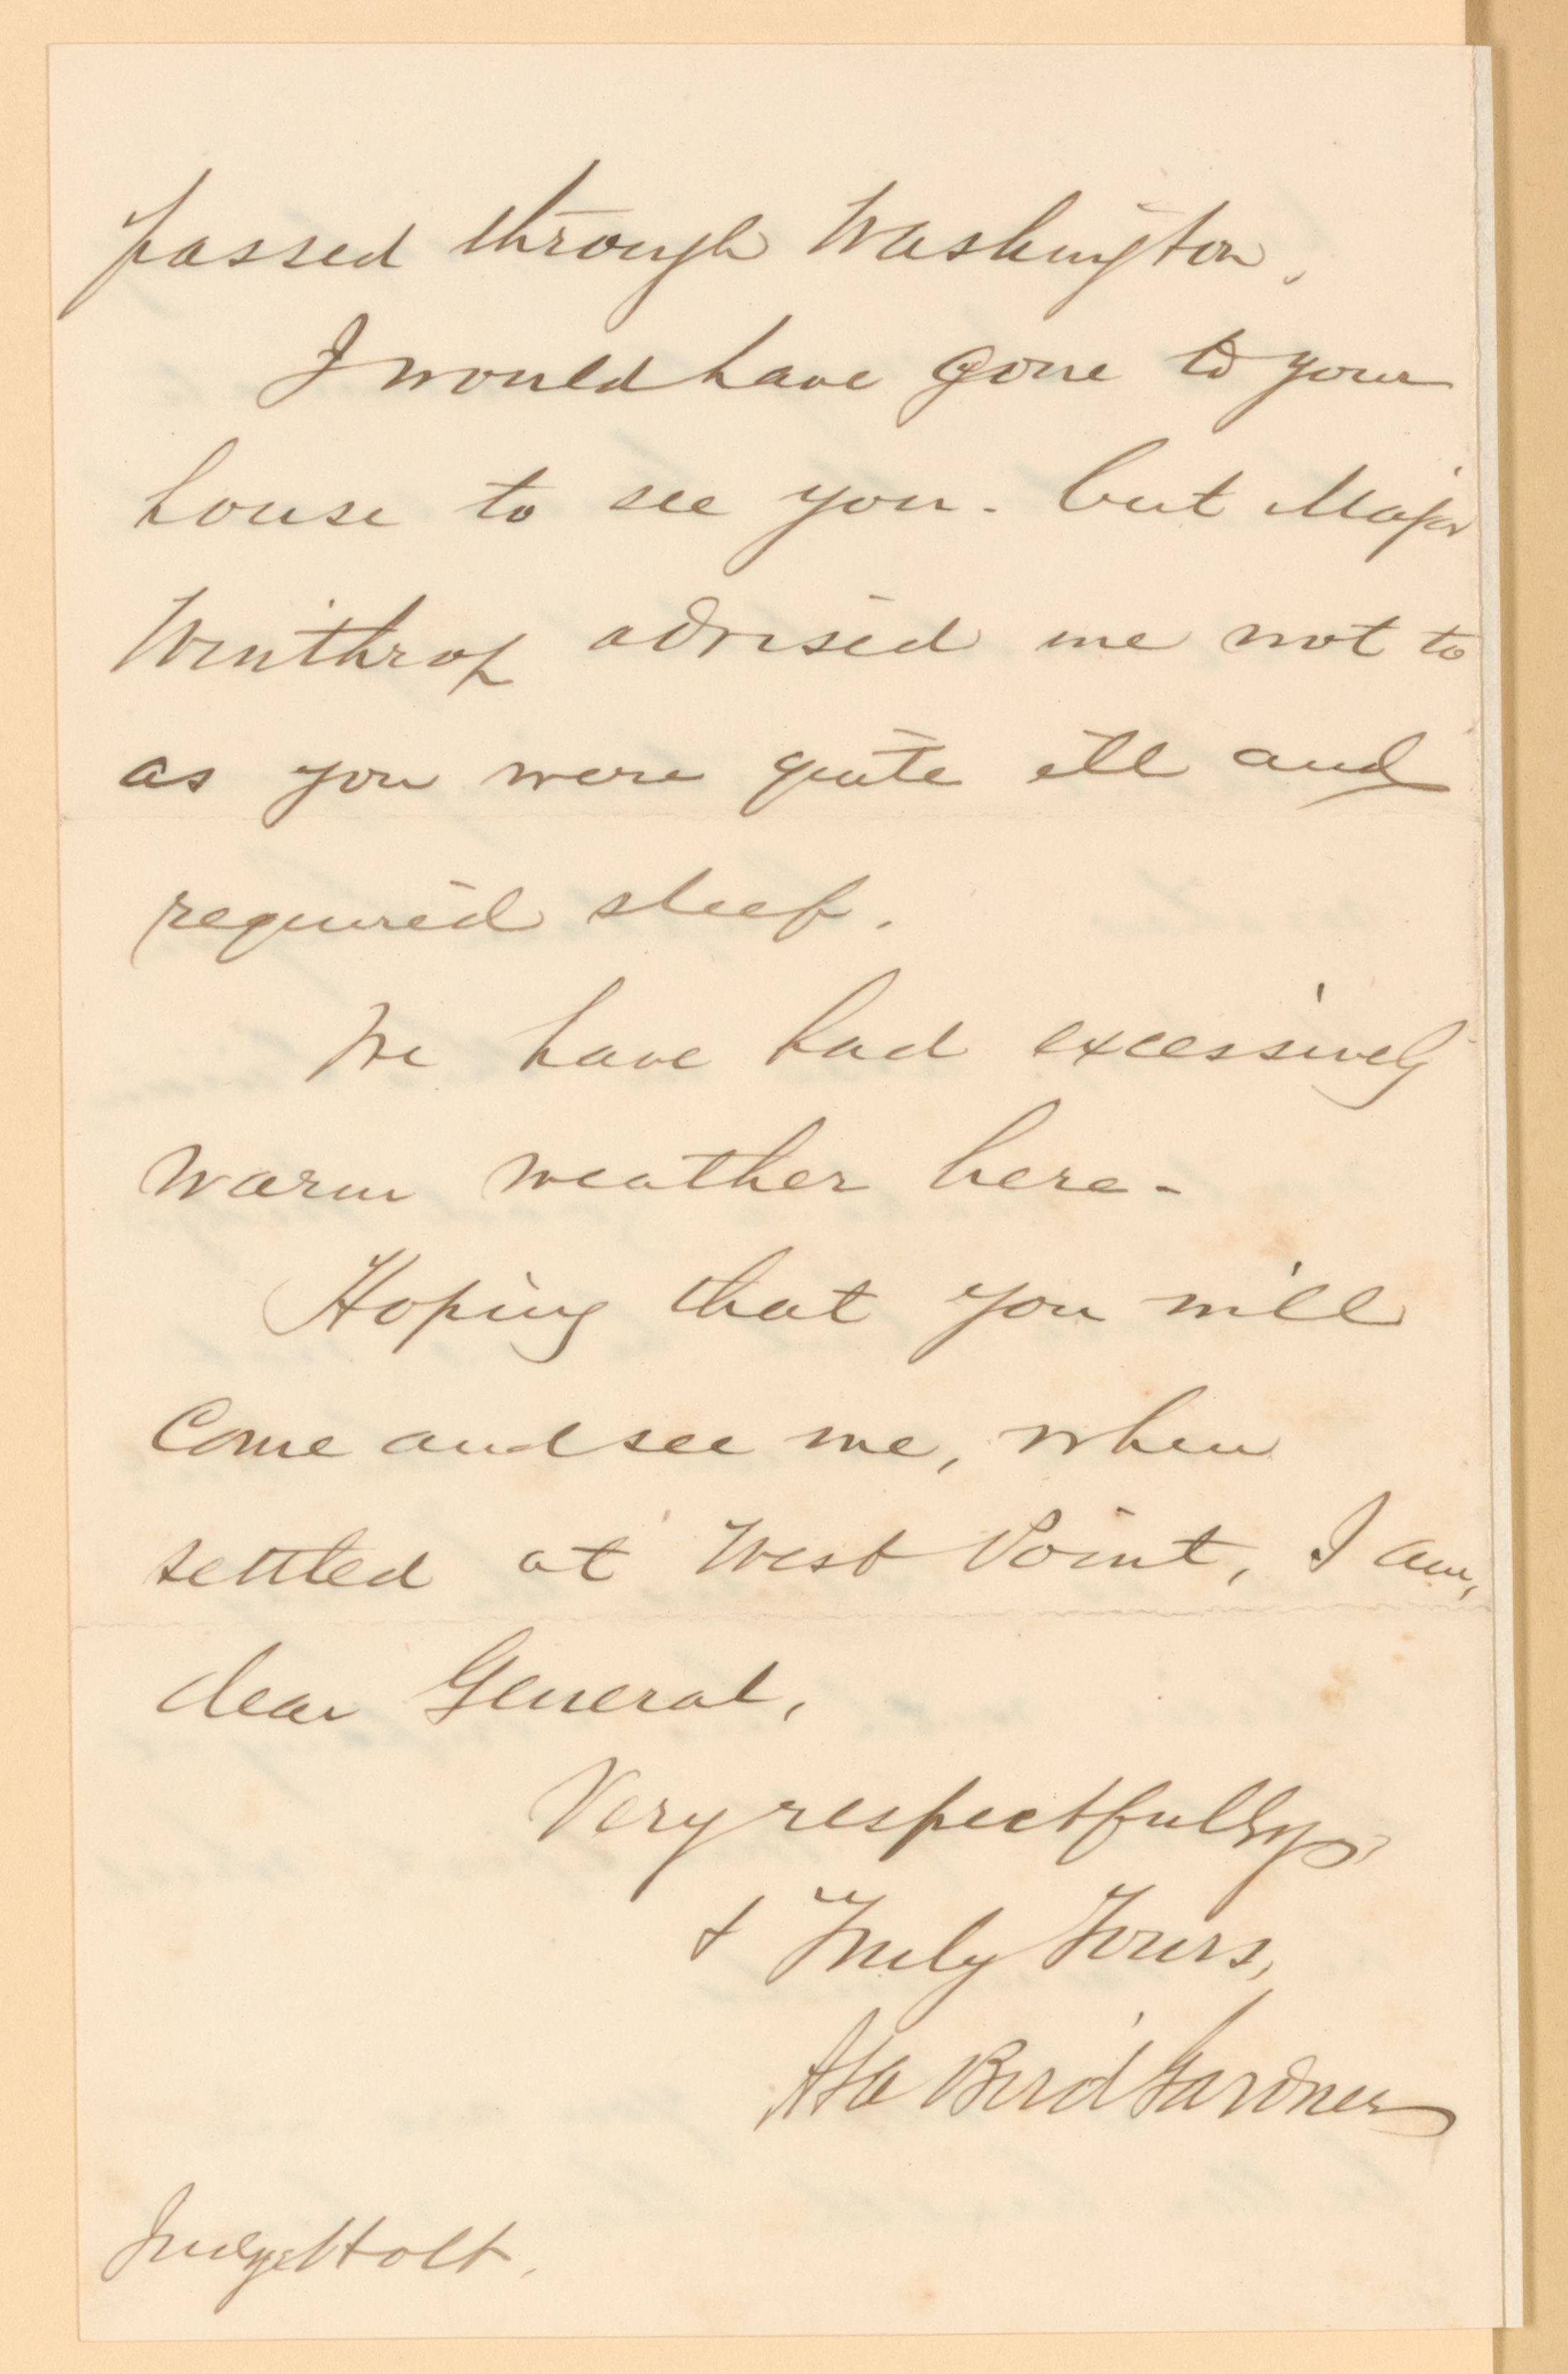 passed through Washington.
I would have gone to your
house to see you. but Major
Winthrop advised me not to
as you were quite ill and
required sleep.
We have had excessively
warm weather here-
Hoping that you will
Come and see me, when
settled at West Point, I am,
dear General,
Very respectfully
& Truly Yours,
Asa Bird Gardner
Judge Holt.